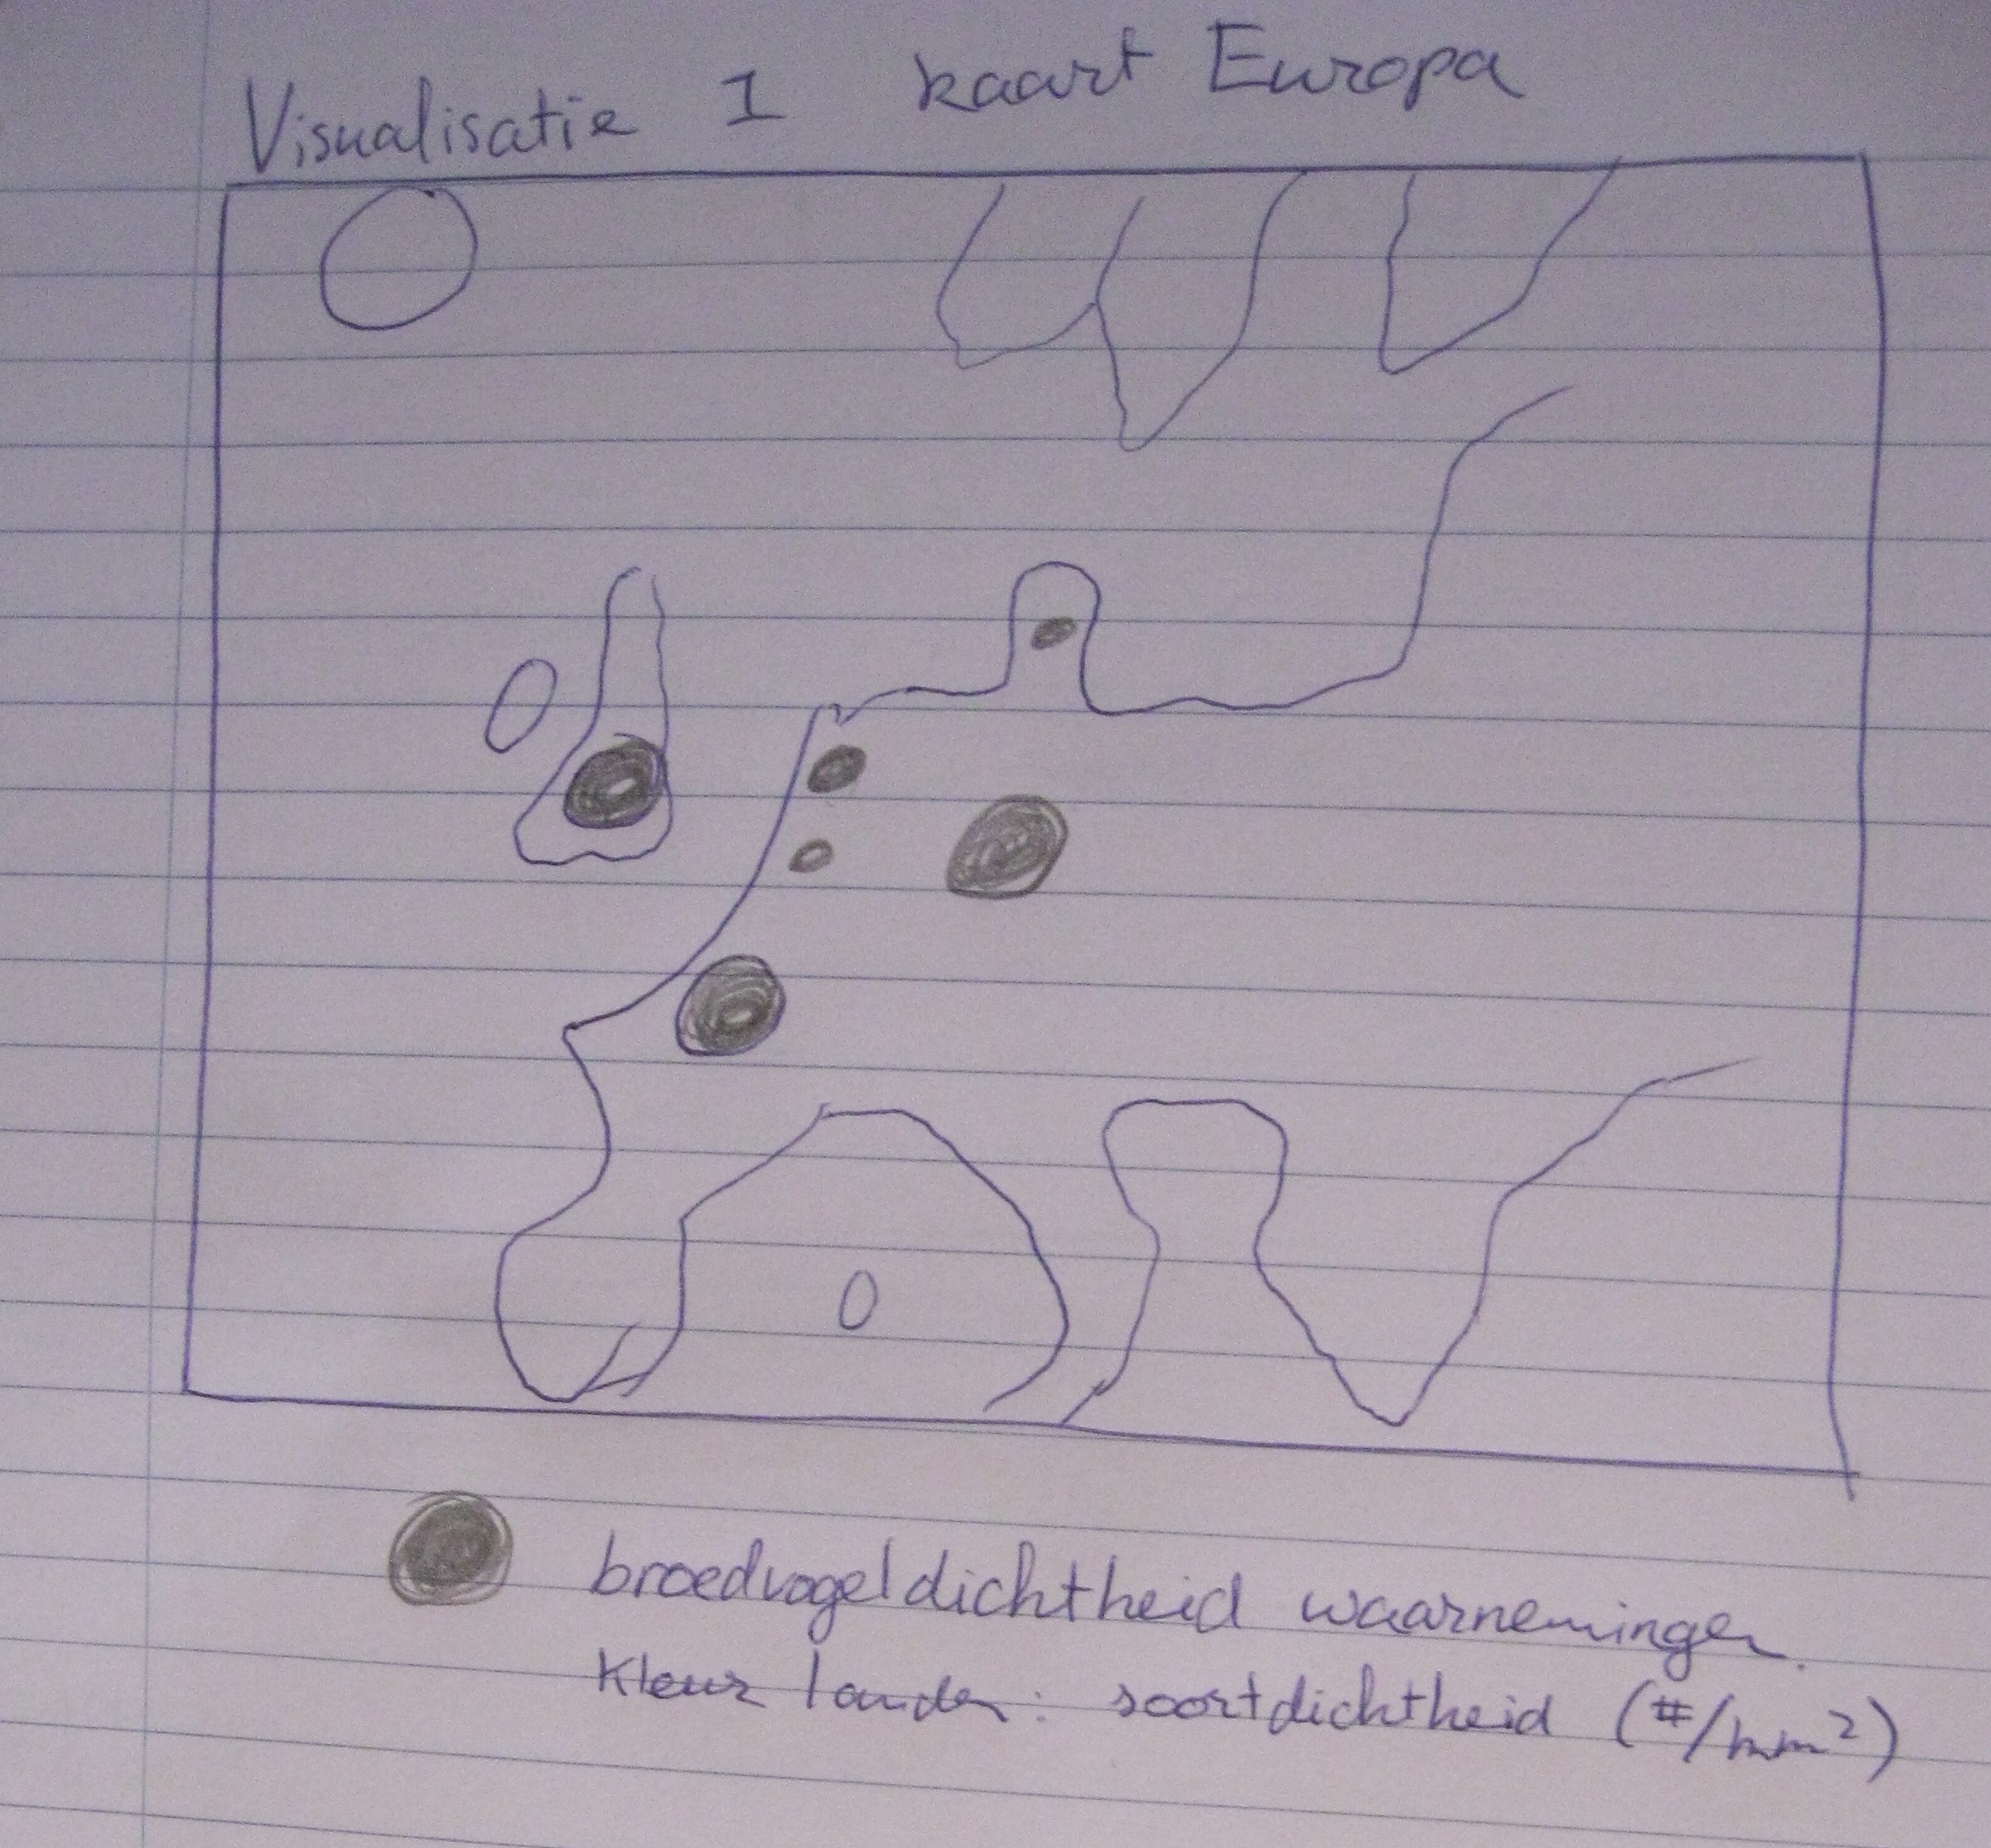 Visualisatie 1 kaart Europa
broedvogeldichtheid waarnemingen.
Kleur landen: soortdichtheid (#/mm²)